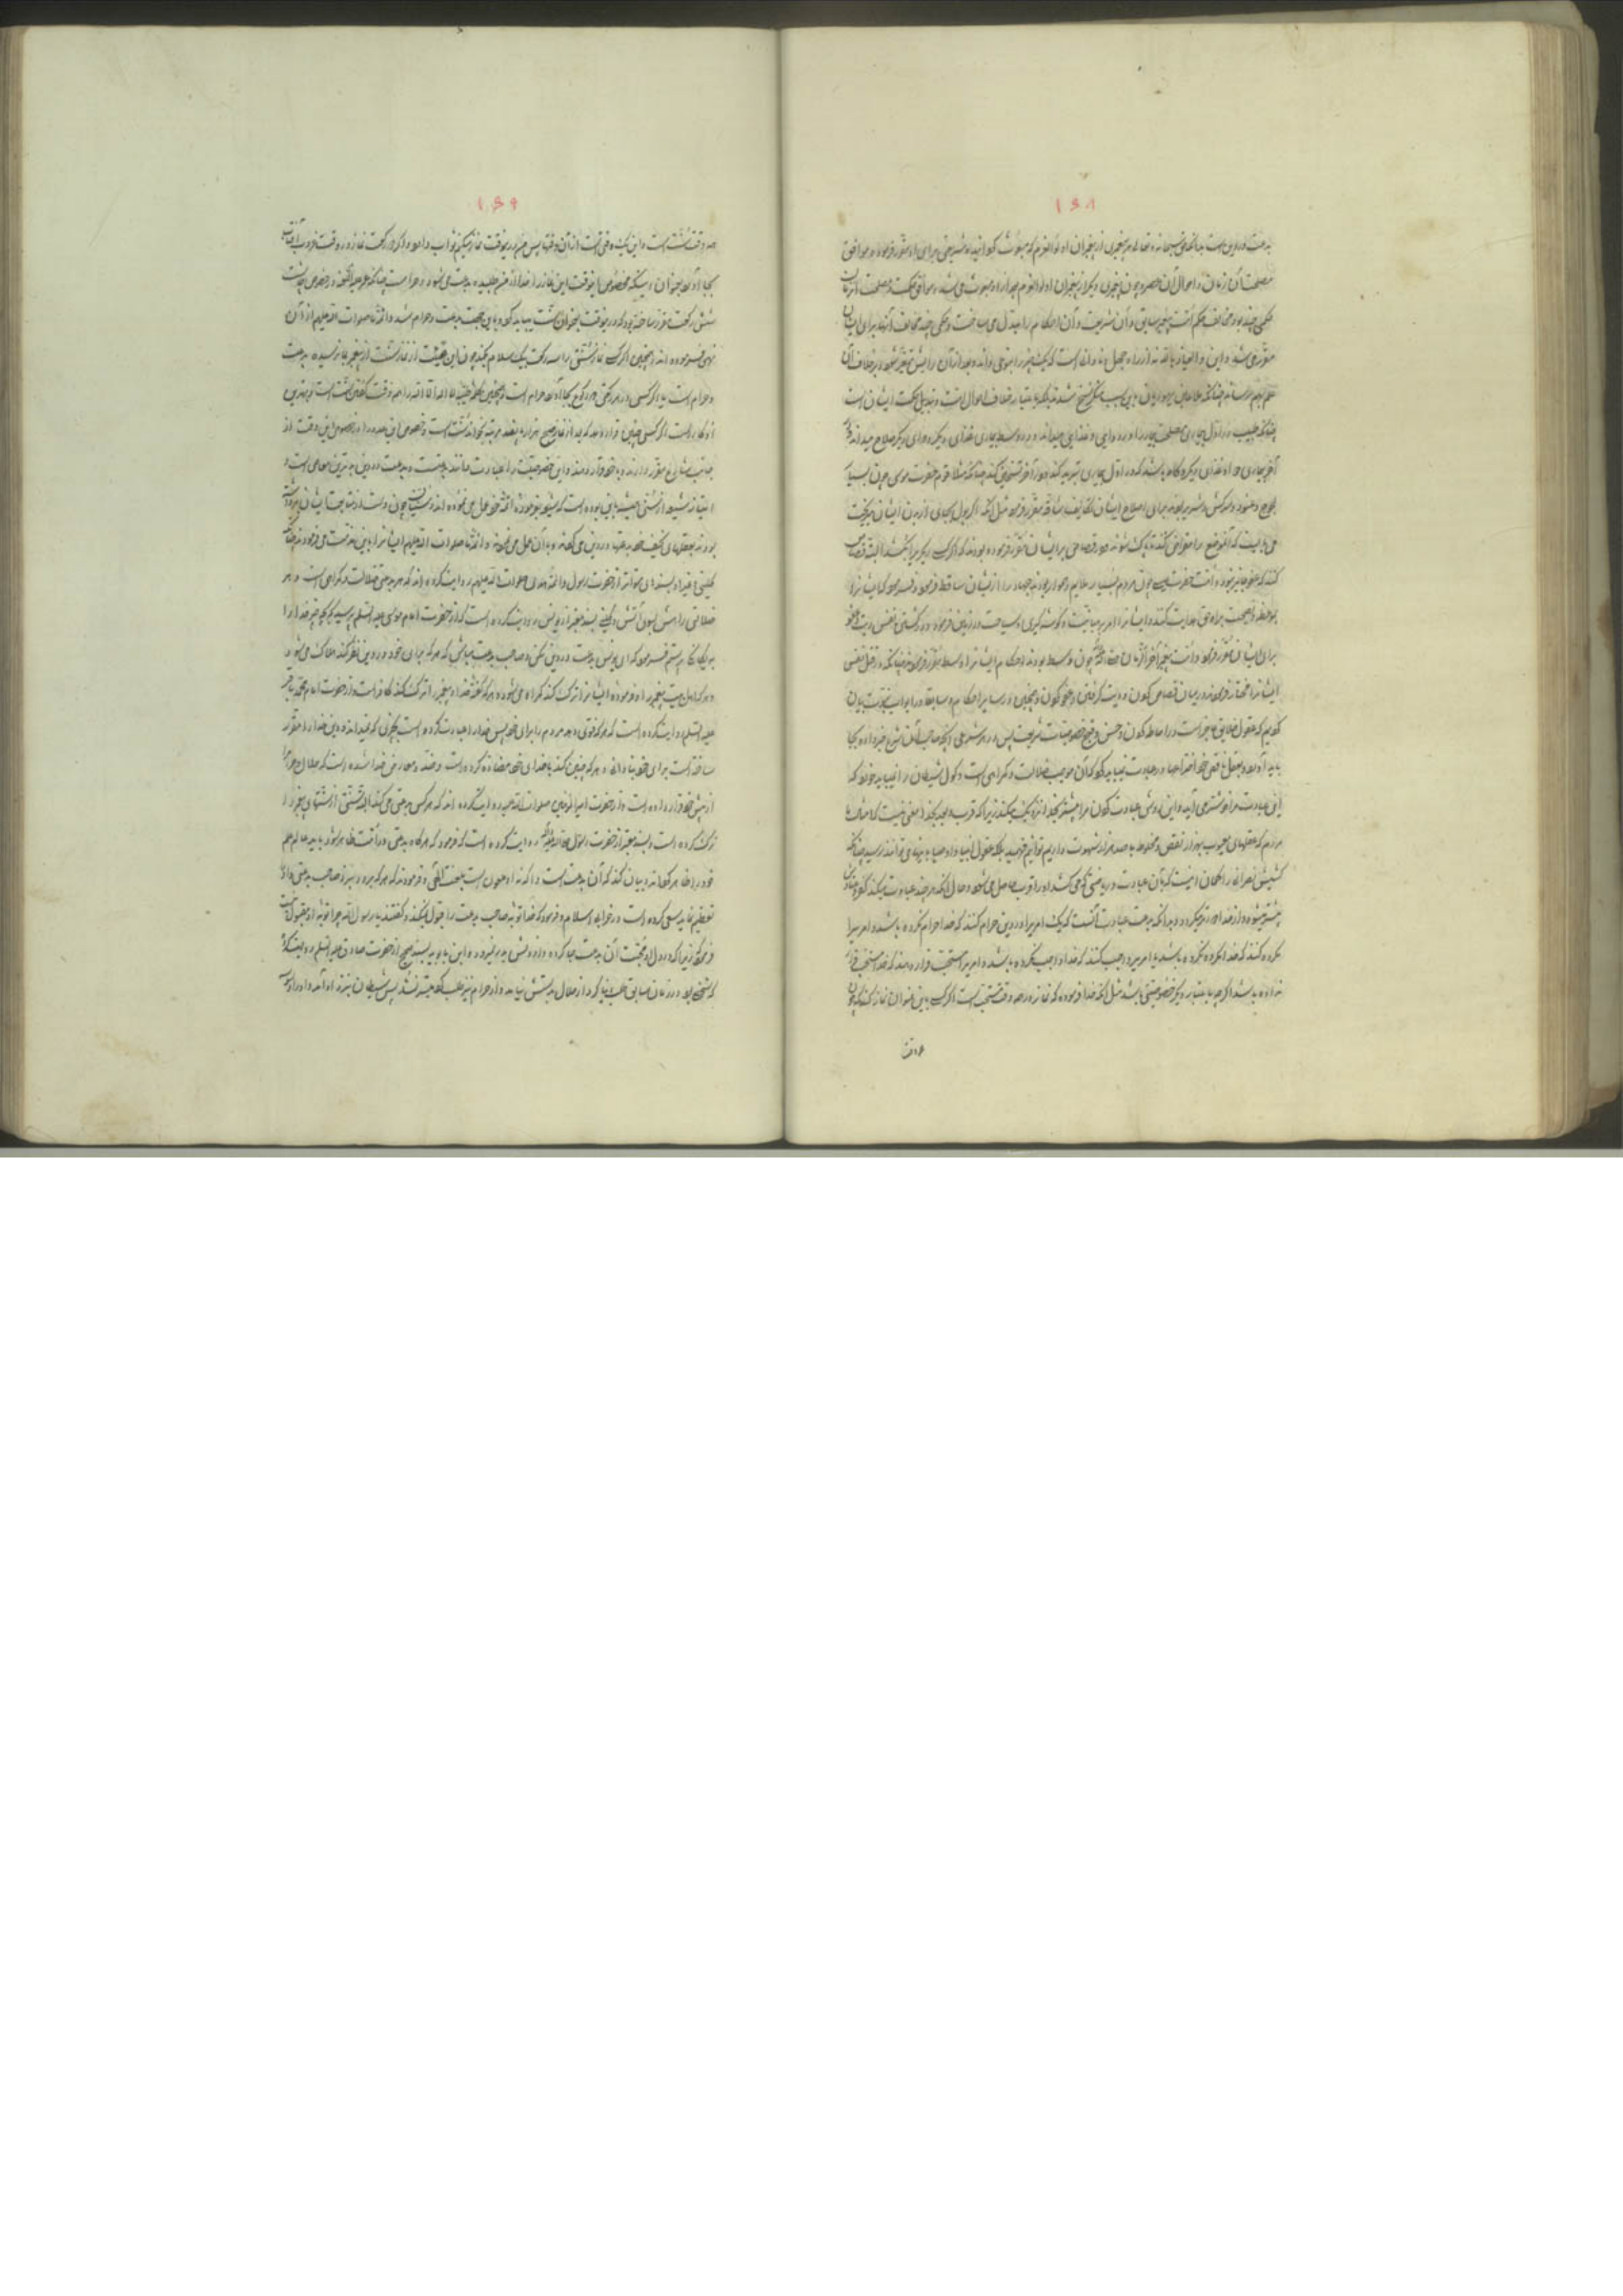 ۱۵۸
بدعت در دین است بدانکه حق سبحانه و تعالی هر پیغمبری از پیغمبران اولوالعزم که مبعوث گردانید شریعتی برای او مقرر فرمود موافق
مصلحت آن زمان و احوال آن عصر و چون پیغمبری دیگر از پیغمبران اولوالعزم بعد از او مبعوث می شد موافق حکمت و مصلحت آن زمان
حکمی چند بود مخالف حکم امت پیغمبر سابق و آن شریعت و آن احکام را مبدل می ساخت و حکمی چند مخالف آنها برای ایشان
مقرر می شد و این
علم بهم رساند چنانکه
چنانکه طبیب در اول بیماری مصلحت بیمار را در دوایی و غذایی میداند و در وسط بیماری غذای دیگر و دوای دیگر صلاح میداند و در
آخر بیماری دوا و غذای دیگر و گاه باشد که در اول بیماری تبرید کند و در آخر تسخین کند چنانکه مثلا قوم حضرت موسی چون بسیار
لجوج و عنود و سرکش بودند برای اصلاح ایشان تکالیف شاقه مقرر فرمود مثل آنکه اگر بول بجای از بدن ایشان میریخت
می بایست که آن موضع را مقراض کنند تا پاک شود و در قصاص برای ایشان مقرر فرموده بودند که اگر کسی دیگری را بکشد البته قصاص
کنند که عفو جایز نبود و امت حضرت عیسی چون مردم بسیار ملایم و هموار بودند جهاد را از ایشان ساقط فرمود
بموعظه و نصیحت براه حق هدایت کنند و ایشان را امر برهبانیت و گوشه گیری و سیاحت در زمین فرمود و در کشتن نفس دیت و عفو
برای ایشان مقرر فرمود و امت پیغمبر آخرالزمان چون وسط بودند احکام ایشان را وسط مقرر فرمود چنانکه در قتل نفس
ایشان را مختار فرمود در میان قصاص کردن و دیت گرفتن و عفو کردن و همچنین در سایر احکام
گوییم که عقول خلایق عاجز است در احاطه کردن حسن و قبح خصوصیات شریعت پس در هر شرعی آنچه صاحب آن شرع خبر داده بجا
باید آورد و بعقل ناقص خود اختراعها در عبادت نباید کرد که آن موجب ضلالت و گمراهی است و گول شیطان را نباید خورد که
این عبادت مرا خوشتر می آید و این روش عبادت کردن مرا بیشتر بخدا نزدیک میکند زیرا که قرب و بعد بخدا معنی نیست که امثال ما
مردم که عقلهای معیوب بهزار نقص و مخلوط بصد هزار شهوت داریم توانیم فهمید بلکه عقول انبیا و اوصیا باینها می توانند رسید چنانکه
کشیش نصرانی را گمان اینست که بآن عبادت و ریاضتی که می کشد او را قرب حاصل می شود و حال آنکه هر چند عبادت میکند کفر و ضلالتش
بیشتر میشود و از خدا دورتر میگردد و بدانکه بدعت عبارت از آنست که یک امری را در دین حرام کنند که خدا حرام نکرده باشد و امری را
مکروه کنند که خدا مکروه نکرده باشد یا امری را واجب کنند که خدا واجب نکرده باشد و امری را مستحب قرار دهند که خدا مستحب قرار
نداده باشد اگر چه باعتبار دیگر خصوصیتی باشد مثل آنکه خدا فرموده که نماز در همه وقت سنت است اگر کسی باین عنوان نماز کند که چون
همه وقت
۱۵۹
همه وقت سنت است و این یک وقتی است از آن وقتها پس من در این وقت نماز میکنم ثواب دارد و اگر دو رکعت نماز در وقت غروب آفتاب
بجا آورد بعنوان اینکه مخصوص این وقت این نماز را خدا از من طلبیده بدعت می شود و حرام است چنانکه عمر علیه اللعنه در خصوص چاشت
شش رکعت مقرر ساخته بود که در این وقت بعنوان سنت بباید کرد و باین جهت بدعت و حرام شد و ائمه ما صلوات الله علیهم از آن
نهی فرموده اند و همچنین اگر کسی نماز سنتی را سه رکعت بیک سلام بکند چون این هیئت از نماز سنت از پیغمبر بما نرسیده بدعت
و حرام است یا اگر کسی در هر رکعتی دو رکوع بجا آورد حرام است و همچنین کلمه طیبه لا اله الا الله را همه وقت گفتن سنت است و بهترین
اذکار است اگر کسی چنین قرار دهد که بعد از نماز صبح هزار و پانصد مرتبه گفتن سنت است و خصوص این عدد را در خصوص این وقت از
جانب شارع مقرر دارند و یا خود قرار دهند و این خصوصیت را عبادت دانند بدعت است و بدعت در دین بدترین معاصی است و
امتیاز شیعه از سنی همیشه باین بوده است که شیعه بفرموده ائمه خود عمل می نموده اند و سنیان چون دست از متابعت ایشان برداشته
بودند بعقلهای کثیف خود بدعتها در دین می کردند و بآن عمل می نمودند و ائمه ما صلوات الله علیهم ایشان را باین مذمت می فرمودند چنانکه
کلینی و غیر او بسندهای متواتر از حضرت رسول و ائمه هدی صلوات الله علیهم روایت کرده اند که هر بدعتی ضلالت و گمراهی است و هر
ضلالتی راهش بسوی آتش است و کلینی بسند معتبر از یونس روایت کرده است که از حضرت امام موسی علیه السلم پرسید که بچه چیز خدا را
به یگانگی پرستم فرمود که ای یونس بدعت در دین مکن و صاحب بدعت مباش که هر که برای خود در دین نظر کند هلاک می شود و
و هر که اهل بیت پیغمبر را و فرموده ایشان را ترک کند گمراه می شود و هر که گفته خدا و پیغمبر را ترک کند کافر است و از حضرت امام محمد باقر
علیه السلم روایت کرده است که هر که فتوی دهد مردم را برای خود پس خدا را عبادت کرده است بچیزی که نمیداند و دین خدا را مقرر
ساخته است برای خود بنادانی و هر که چنین کند با خدای خود مضاده کرده است و ضد و معارض خدا شده است که حلال و حرام را
از پیش خود قرار داده است و از حضرت امیرالمؤمنین صلوات الله علیه روایت کرده اند که هر کس بدعتی می کند البته سنتی از سنتهای پیغمبر را
ترک کرده است و بسند معتبر از حضرت رسول صلی الله علیه و آله روایت کرده است که فرمود که هرگاه بدعتی در امت ظاهر شود باید عالم علم
خود را ظاهر گرداند و بیان کند که آن بدعت است و اگر نه او ملعون است بلعنت الهی و فرمودند که هر که برود بنزد صاحب بدعتی و او را
تعظیم نماید سعی کرده است در خرابی اسلام و فرمود که خدا توبه صاحب بدعت را قبول نمیکند گفتند یا رسول الله چرا توبه او مقبول نیست
فرمود که زیرا که در دل او محبت آن بدعت جا کرده و از دلش بدر نمیرود و ابن بابویه بسند صحیح از حضرت صادق علیه السلم روایت کرده
که شخصی بود در زمان سابق طلب دنیا کرد از حلال بدستش نیامد و از حرام نیز طلب کرد میسر نشد پس شیطان بنزد او آمد و او را وسوسه